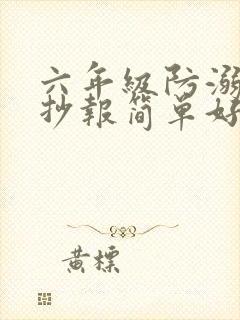 六年級防溺
抄報简單好
黄標